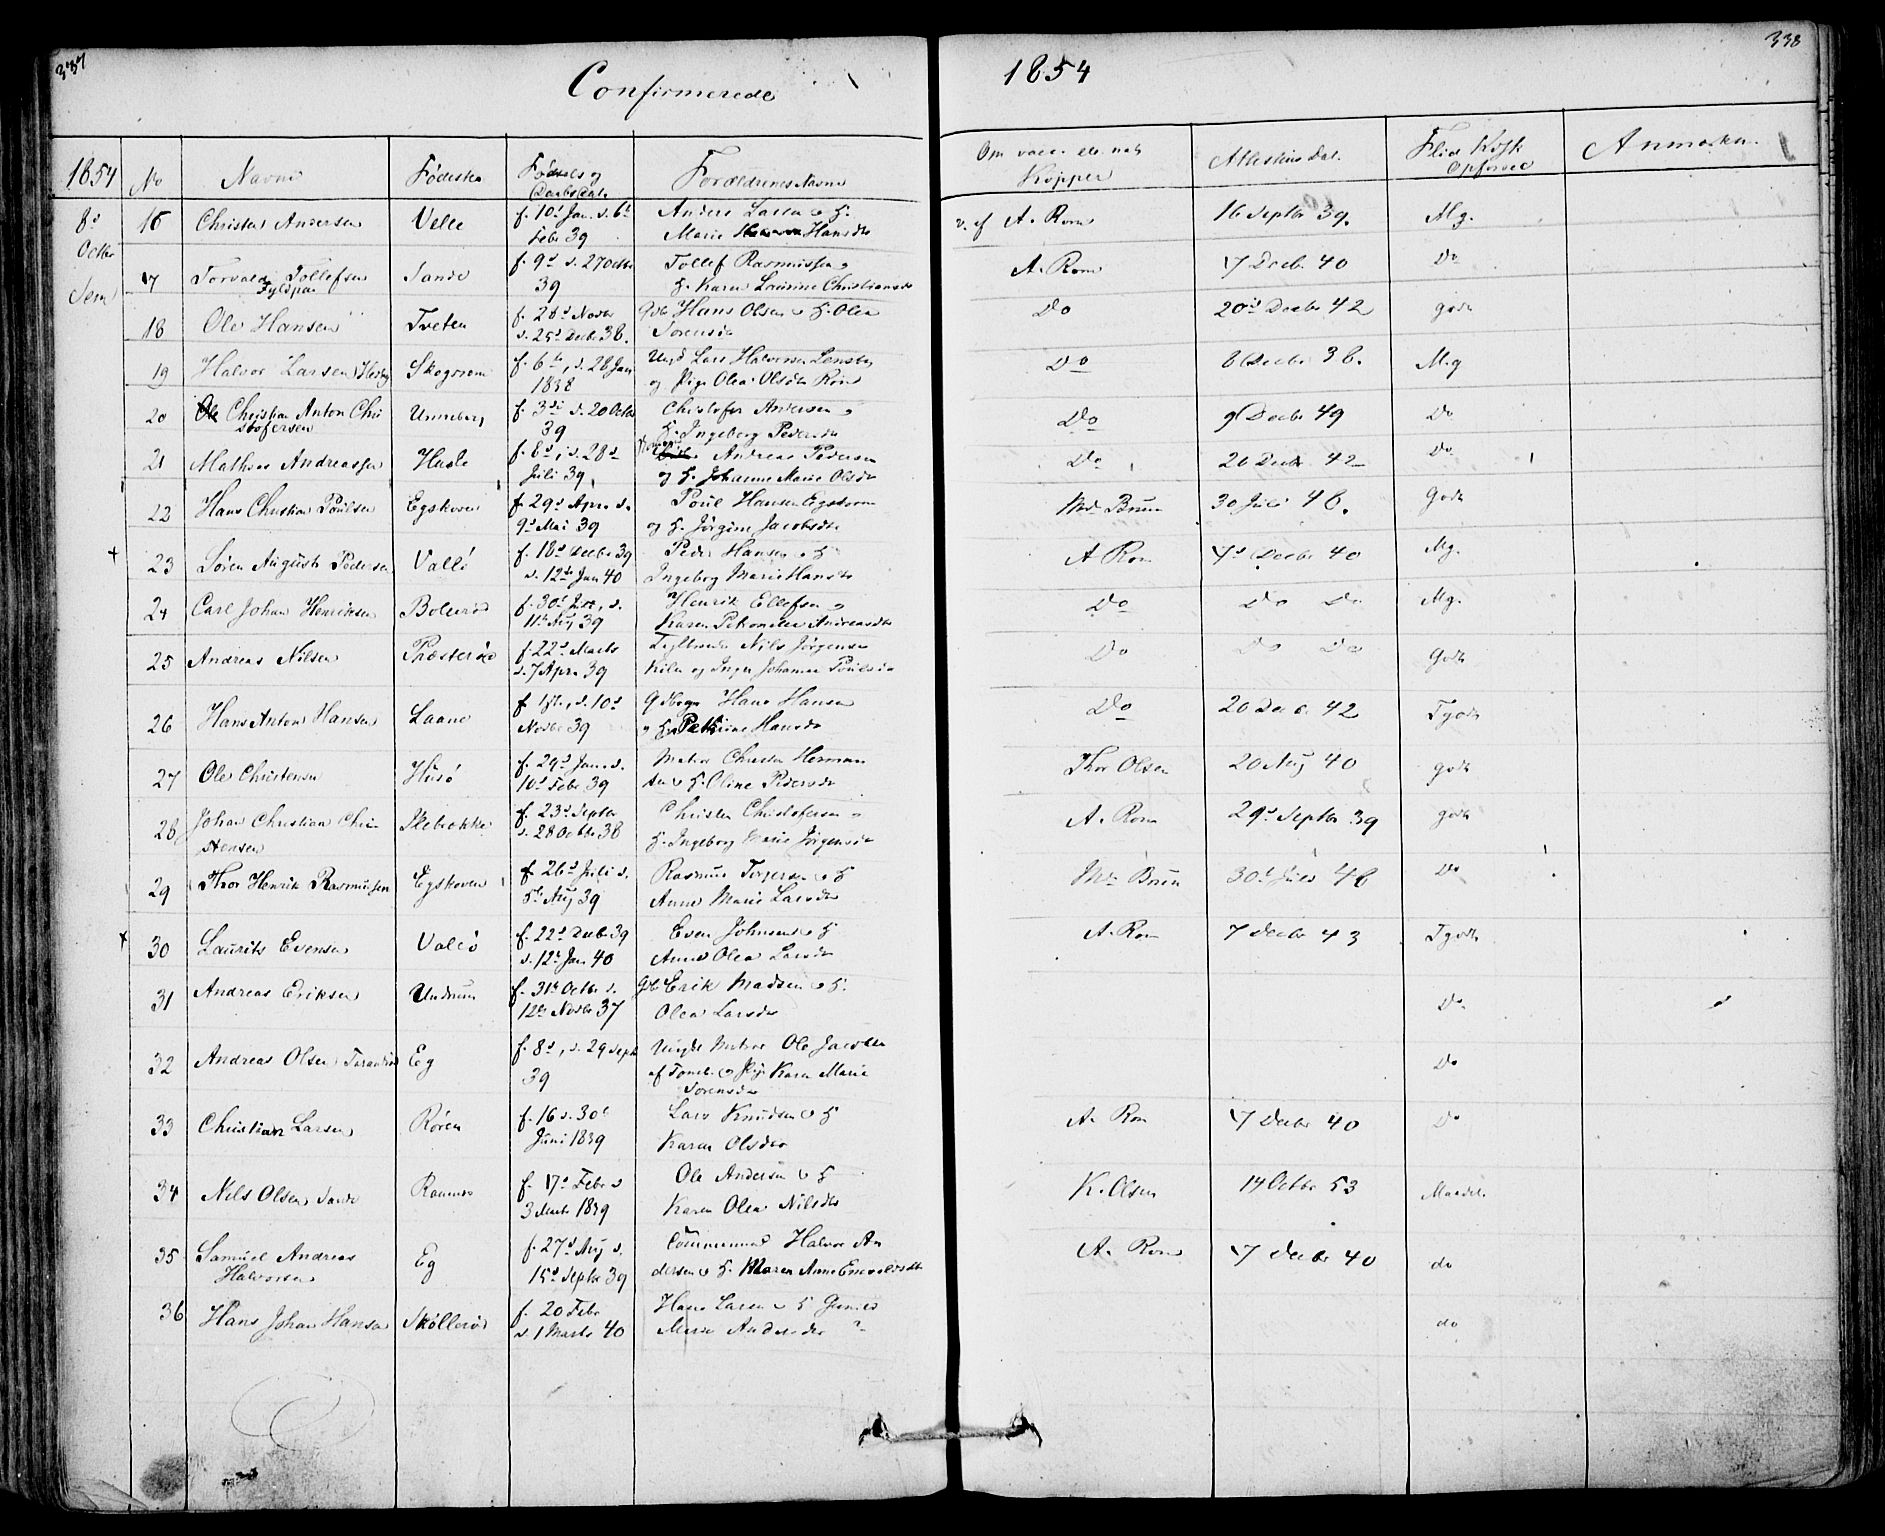 337
Confirmerede
1854
338
1854 No Navne Fødested Fødsels og Daabs Dat. Forældrenes Navne Om vacc. ell. nat. Kopper Attestens Dat. Flid Kdsk Opførsel Anmærkn.
8d Octbr Sem
16 Christen Andersen Velle f. 10d Jan. d. 6te Febr 39 Anders Larsen & H. Marie Hansdr v. af A. Rom 16 Septbr 39. Mg.
17 Torvald Tollefsen Fyldpaa Sande f. 9d d. 27 Octbr 39 Tollef Rasmussen & H. Karen Laurine Christiansdr A. Rom 7 Decbr 40 Do
18 Ole Hansen Tveten f. 28d Novbr d. 25d Decbr 38. Gdb Hans Olsen & H. Olea Sørensdr Do 20d Decbr 42 godt
19 Halvor Larsen Skogsrom f. 6te, d. 28 Jan 1838 Ungk Lars Halvorsen og Pige Olea Olsdr Do 8 Decbr 38. Mg
20 Christian Anton Christofersen Unneberg f. 3de d. 20 Octbr 39 Christofer Andersen & H. Ingeborg Pedersdr Do 9 Decbr 49 Do
21 Mathias Andreassen Hasle f. 8d, d. 28d Juli 39 Andreas Pedersen og H. Johanne Marie Olsdr Do 20 Decbr 42 Do
22 Hans Christian Poulsen Egskoven f. 29d Apr. d. 9d Mai 39 Poul Hansen Egskoven og H. Jørgine Jacobsdr Md. Bruun 30 Juli 48. Godt
23 Søren August Pedersen Vallø f. 18d Decbr 39 d. 12te Jan 40 Peder Hansen & H Ingeborg Marie Hansdr A Rom 7d Decbr 40 Mg.
24 Carl Johan Henriksen Bollerød f. 30d , d. 11te Aug 39 Henrik Ellefsen & Karen Petronelle Andreasdr Do Do Do Mg.
25 Andreas Nilsen Præsterød f. 22d Marts d. 7 Apr. 39 Nils Jørgensen og Inger Johanne Poulsdr Do Do Do Godt
26 Hans Anton Hansen Laane f. d. 10d Novbr 39 Hans Hansen & H. Petrine Hansdr Do 20 Decbr 42 Tgodt
27 Ole Christensen Husø f. 29d Jan. d. 10d Febr 39 Matros Christen Hermansen & H. Oline Pedersdr Thor Olsen 20 Aug 40 godt
28 Johan Christian Christensen Melsokke f. 23d Septbr d. 28 Octbr 38 Christen Christofersen & H. Ingeborg Marie Jørgensdr A. Rom 29d Septbr 39 godt
29 Thor Henrik Rasmussen Egskoven f. 26d Juli d. 5te Aug 39 Rasmus Torgersen & H Anne Marie Larsdr Md. Bruun 30d Juli 48 Do
30 Laurits Evensen Valøe f. 22d Decbr 39 d. 12te Jan 40 Even Johnsen & H Anne Olea Larsdr A. Rom 7 Decbr 43 Tgodt
31 Andreas Eriksen Undrum f. 31te Octbr d. 12te Novbr 37 Gdb Erik Madsen & H. Olea Larsdr Do
32 Andreas Olsen Eg f. 8d, d. 29 Septb 39 Ungk Matros Ole Jacobsen af & Pige Karen Marie Sørensdr Do
33 Christian Larsen Røren f. 16 d. 30te Juni 1839 Lars Knudsen & H Karen Olsdr A. Rom 7 Decbr 40 Do
34 Nils Olsen Sande f. 17d Febr d 3 Marts 1839 Ole Andersen & H Karen Olea Nilsdr K. Olsen 14 Octbr 53 Maadel.
35 Samuel Andreas Halvorsen Eg f. 27d Aug d. 15d Septbr 39 Halvor Andersen & H. Maren Anne Enevoldsdr A. Rom 7 Decbr 40 do
36 Hans Johan Hansen Skøllerød f. 20 Febr d. 1 Marts 40 Hans Larsen & H Andersdr ? do